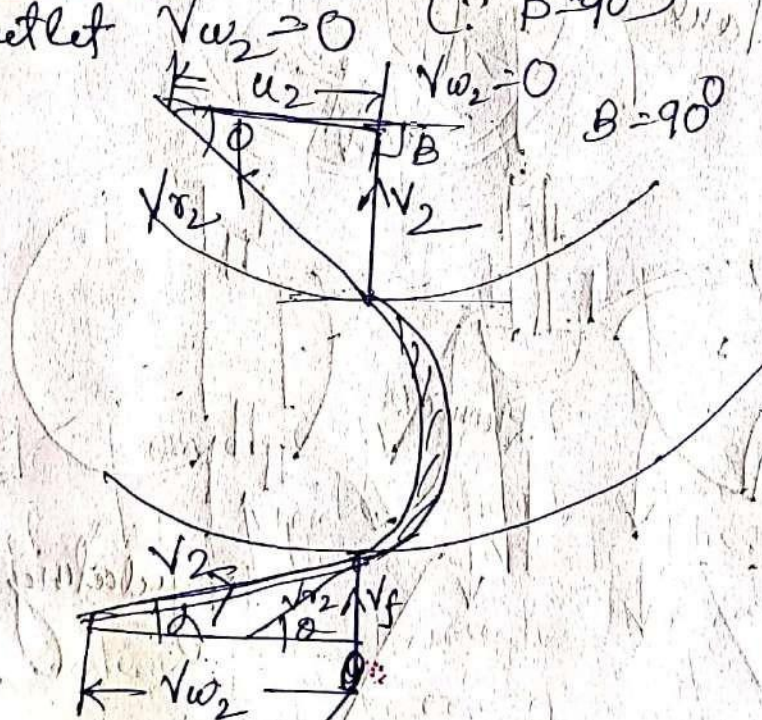 outlet Vw₂ = 0 (∵ B = 90°)
u₂ Vw₂ = 0
B = 90°
Φ B
Vr₂ V₂
V₂ Vr₂ Vf
α θ
Vw₂